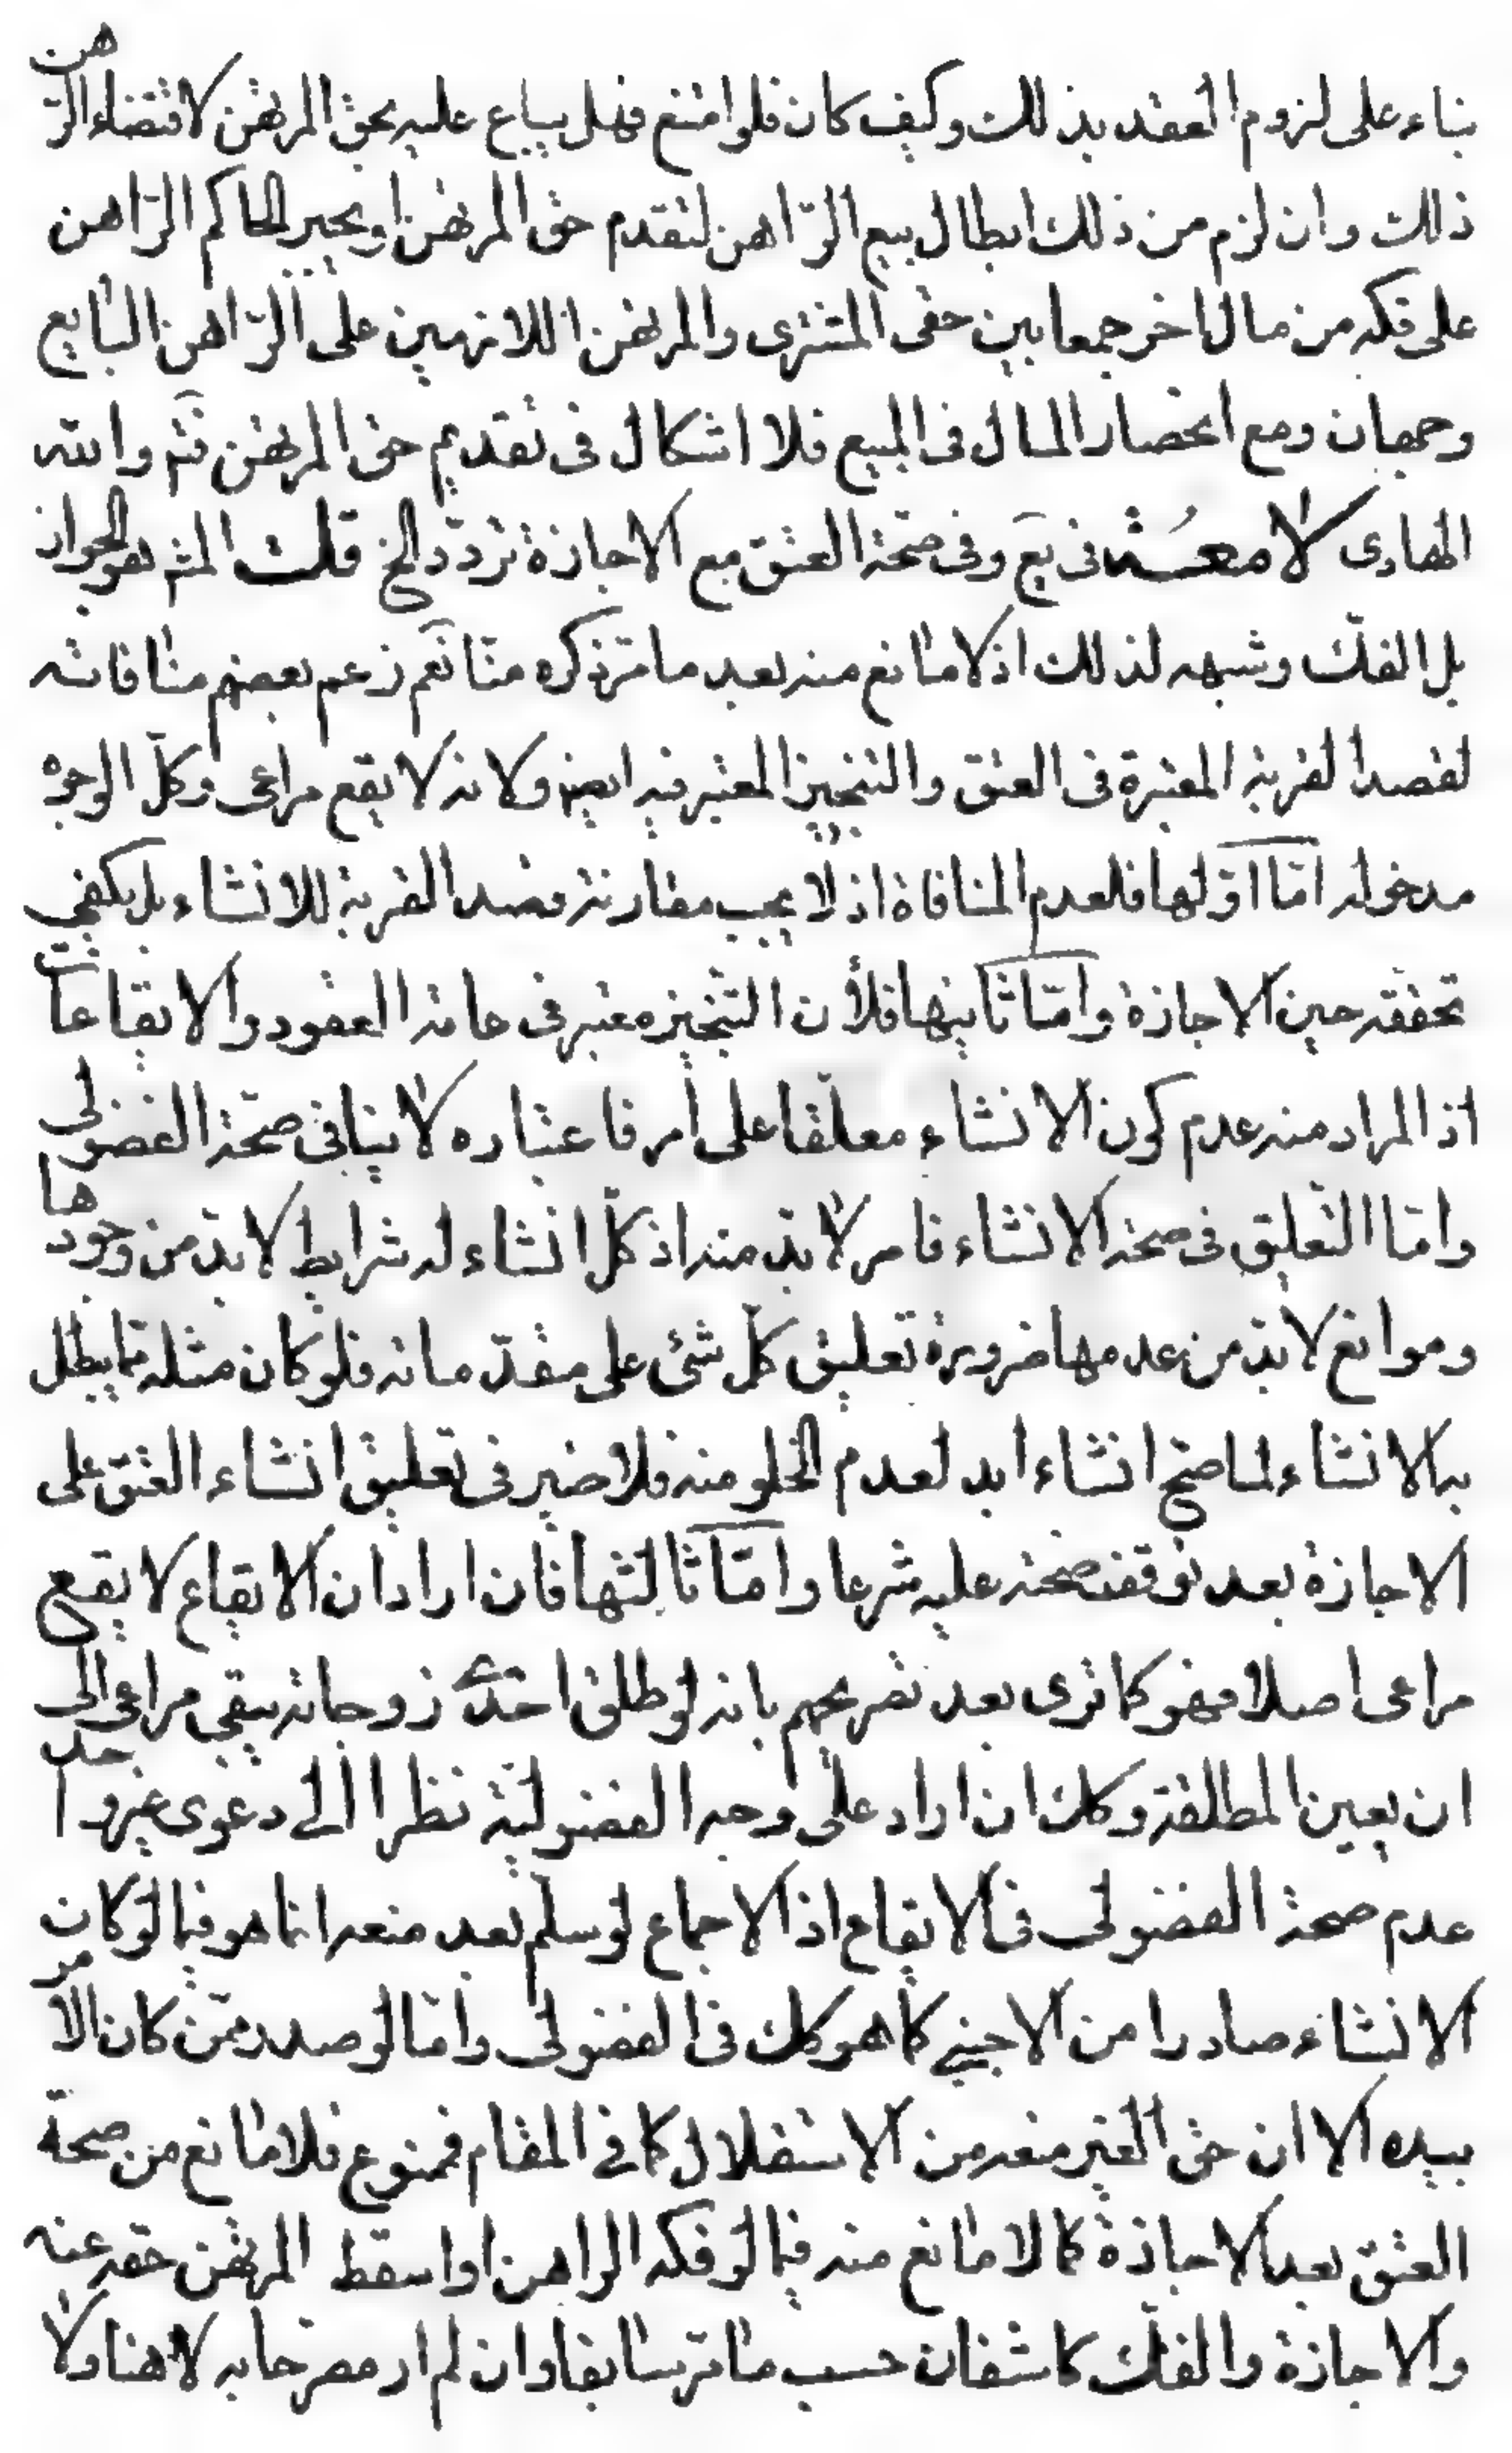 بناء على لزوم العقد بذلك وكيف كان فلو امتنع فهل يباع عليه بحق المرتهن لاقتضاء الرهن
ذلك وان لزم من ذلك ابطال بيع الرّاهن لتقدم حق المرتهن او يجبر الحاكم الرّاهن
على فكه من مال اخر جمعا بين حقى المشترى والمرتهن اللازمين على الرّاهن البايع
وجهان ومع انحصار المال فى المبيع فلا اشكال فى تقديم حق المرتهن فتم والله
الهادى لامعــة فى يع وفى صحّة العتق مع الاجازة تردّد الخ قلت المتم هو الجواز
بل الفكّ وشبهه لذلك اذ لا مانع منه بعد ما مرّ ذكره منّا نعم زعم بعضهم منافاته
لقصد القربة المعتبرة فى العتق والتنجيز المعتبر فيه ايض ولانه لا يقع مراعى وكلّ الوجوه
مدخولة امّا اوّلها فلعدم المنافاة اذ لا يجب مقارنة قصد القربة للانشاء بل يكفى
تحققه حين الاجازة وامّا ثانيها فلأن التنجيز معتبر فى عامة العقود والايقاعات
اذ المراد منه عدم كون الانشاء معلّقا على امر فاعتباره لا ينافى صحّة الفضولى
وامّا التعليق فى صحة الانشاء فامر لا بدّ منه اذ كلّ انشاء له شرايط لا بدّ من وجودها
وموانع لا بدّ من عدمها ضرورة تعليق كلّ شئ على مقدّماته فلو كان مثله ممّا يبطل
به الانشاء لما صحّ انشاء ابد لعدم الخلو منه فلا ضير فى تعليق انشاء العتق على
الاجازة بعد توقف صحته عليه شرعا وامّا ثالثها فان اراد ان الايقاع لا يقع
مراعى اصلا فهو كما ترى بعد تصريحهم بانه لو طلق احدى زوجاته يبقى مراعى الى
ان يعين المطلقة وكك ان اراد على وجه الفضوليّة نظرا الى دعوى غير واحد
عدم صحة الفضولى فى الايقاع اذ الاجماع لو سلم بعد منعه انما هو فيما لو كان
الانشاء صادرا من الاجنبى كما هو كك فى الفضولى وامّا لو صدر ممّن كان الامر
بيده الا ان حق الغير منعه من الاستقلال كما فى المقام فممنوع فلا مانع من صحة
العتق بعد الاجازة كما لا مانع منه فيما لو فكه الراهن او اسقط المرتهن حقه عنه
والاجازة والفكّ كاشفان حسب ما مرّ سابقا وان لم ار مصرحا به لا هنا ولا